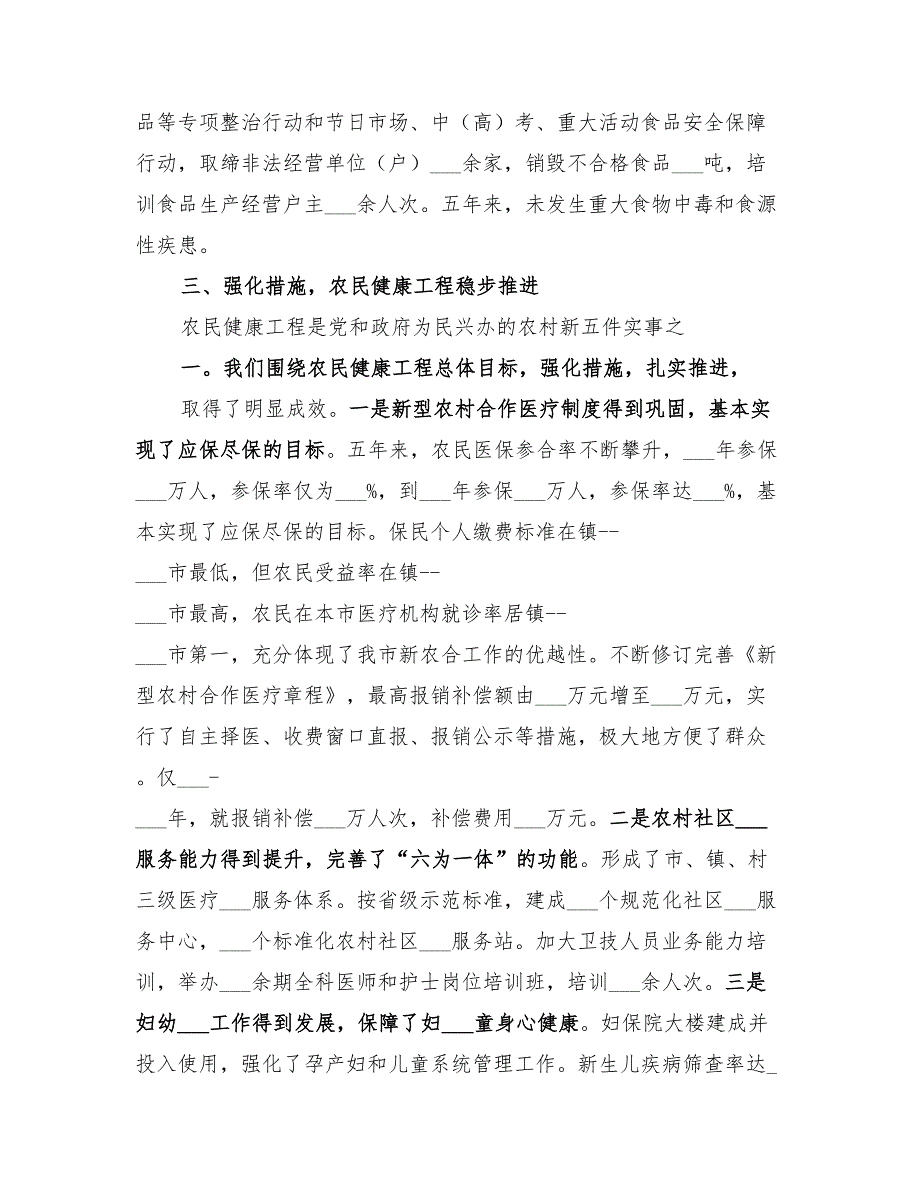 品等专项整治行动和节日市场、中（高）考、重大活动食品安全保障
行动，取缔非法经营单位（户）___余家，销毁不合格食品___吨，培
训食品生产经营户主___余人次。五年来，未发生重大食物中毒和食源
性疾患。
三、强化措施，农民健康工程稳步推进
农民健康工程是党和政府为民兴办的农村新五件实事之
一。我们围绕农民健康工程总体目标，强化措施，扎实推进，
取得了明显成效。一是新型农村合作医疗制度得到巩固，基本实
现了应保尽保的目标。五年来，农民医保参合率不断攀升，___年参保
___万人，参保率仅为___%，到___年参保___万人，参保率达___%，基
本实现了应保尽保的目标。保民个人缴费标准在镇--
___市最低，但农民受益率在镇--
___市最高，农民在本市医疗机构就诊率居镇--
___市第一，充分体现了我市新农合工作的优越性。不断修订完善《新
型农村合作医疗章程》，最高报销补偿额由___万元增至___万元，实
行了自主择医、收费窗口直报、报销公示等措施，极大地方便了群众
。仅___-
___年，就报销补偿___万人次，补偿费用___万元。二是农村社区___
服务能力得到提升，完善了“六为一体”的功能。形成了市、镇、村
三级医疗___服务体系。按省级示范标准，建成___个规范化社区___服
务中心，___个标准化农村社区___服务站。加大卫技人员业务能力培
训，举办___余期全科医师和护士岗位培训班，培训___余人次。三是
妇幼___工作得到发展，保障了妇___童身心健康。妇保院大楼建成并
投入使用，强化了孕产妇和儿童系统管理工作。新生儿疾病筛查率达_